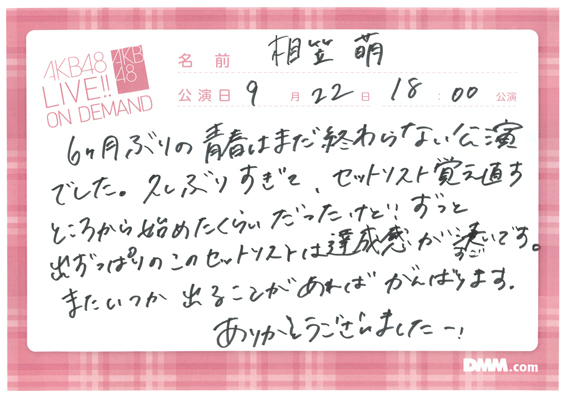 AKB48
LIVE!!
ON DEMAND
AKB
48
名前 相笠萌
公演日 9月22日 18:00公演
6ヶ月ぶりの青春はまだ終わらない公演
でした。久しぶりすぎて、セットリスト覚え直す
ところから始めたくらいだったけど!ずっと
出ずっぱりのこのセットリストは達成感が凄いです。
すご
またいつか出ることがあればがんばります。
ありがとうございましたー!
DMM.com